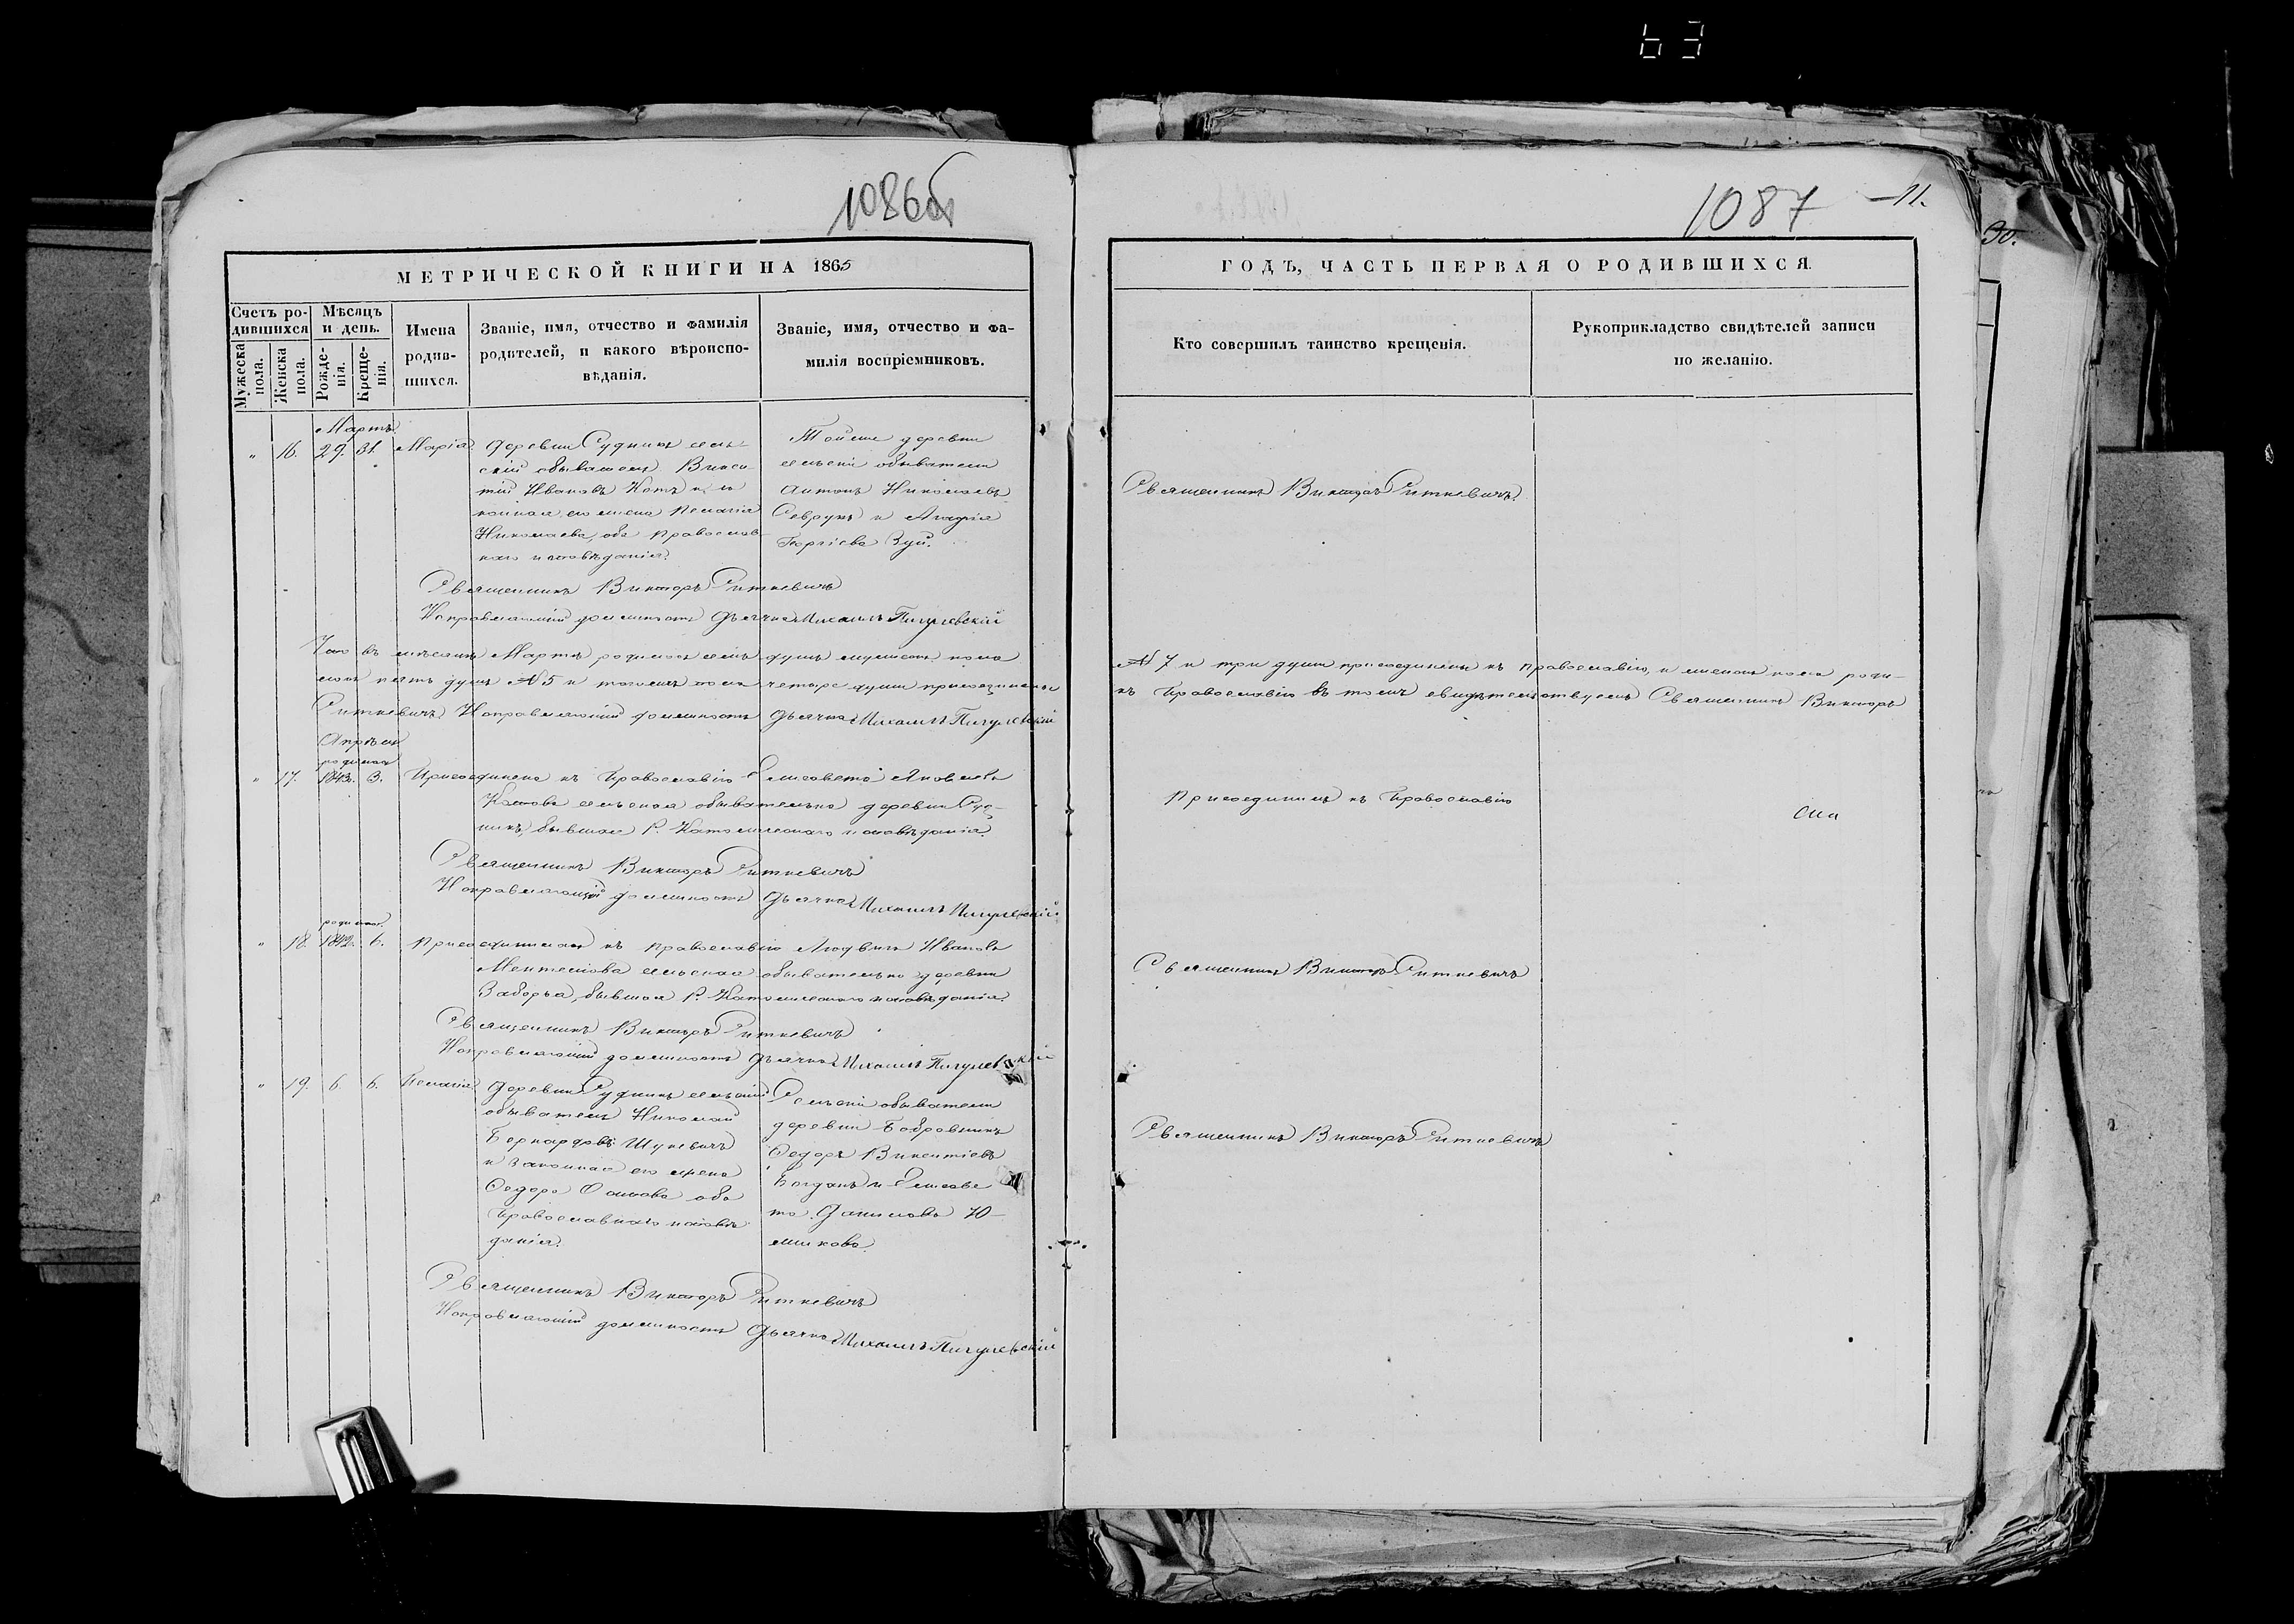 63
1086об
1087
11.
30.
МЕТРИЧЕСКОЙ КНИГИ НА 1865
ГОДЪ, ЧАСТЬ ПЕРВАЯ О РОДИВШИХСЯ.
Счетъ ро-
дившихся
Мѣсяцъ
и день.
Мужеска
пола.
Женска
пола.
Рожде-
нія.
Креще-
нія.
Имена
родив-
шихся.
Званіе, имя, отчество и фамилія
родителей, и какого вѣроиспо-
вѣданія.
Званіе, имя, отчество и фа-
милія воспріемниковъ.
Кто совершилъ таинство крещенія.
Рукоприкладство свидѣтелей записи
по желанію.
Мартъ
„ 16. 29. 31. Марія
Деревни Рудникъ сель-
скій обыватель Викен-
тій Ивановъ Котъ и за-
конная его жена Пелагія
Николаева, оба православ-
наго исповѣданія.
Тойже деревни
сельскій обыватель
Антонъ Николаевъ
и
Георгіева Зуй.
Священникъ Викторъ Ситкевичъ.
Священникъ Викторъ Ситкевичъ
Исправляющій должность Дьячка Михаилъ Пигулевскій
въ мѣсяцѣ Мартѣ родилось душъ мужеска пола
пять душъ № 5 и четыре души присоединены
№ 7 и три души присоединены къ православію, и женска пола роди-
къ Православію въ томъ свидѣтельствуемъ Священникъ Викторъ
Ситкевичъ Исправляющій должность Дьячка Михаилъ Пигулевскій
Апрѣль
родилась
„ 17. 1843. 3. Присоединена къ Православію Елисавета Яковлева
Котова сельская обывателька деревни Руд-
никъ, бывшая Р. Католическаго исповѣданія.
Присоединилъ къ Православію
Священникъ Викторъ Ситкевичъ
Исправляющій должность Дьячка Михаилъ Пигулевскій
родилась
„ 18. 1842. 6. Присоединилась къ православію Людвига Иванова
сельская обывателька деревни
Заборья, бывшая Р. Католическаго исповѣданія.
Священникъ Викторъ Ситкевичъ
Священникъ Викторъ Ситкевичъ
Исправляющій должность Дьячка Михаилъ Пигулевскій
„ 19. 6. 6. Пелагія
Деревни Рудникъ сельскій
обыватель Николай
Бернардовъ Шукевичъ
и законная его жена
Ѳеодора Осипова оба
Православнаго исповѣ-
данія.
Сельскій обыватель
деревни Бобровникъ
Ѳедоръ Викентіевъ
Богданъ и Елисаве-
та Данилова Ю-
шкова.
Священникъ Викторъ Ситкевичъ
Священникъ Викторъ Ситкевичъ
Исправляющій должность Дьячка Михаилъ Пигулевскій